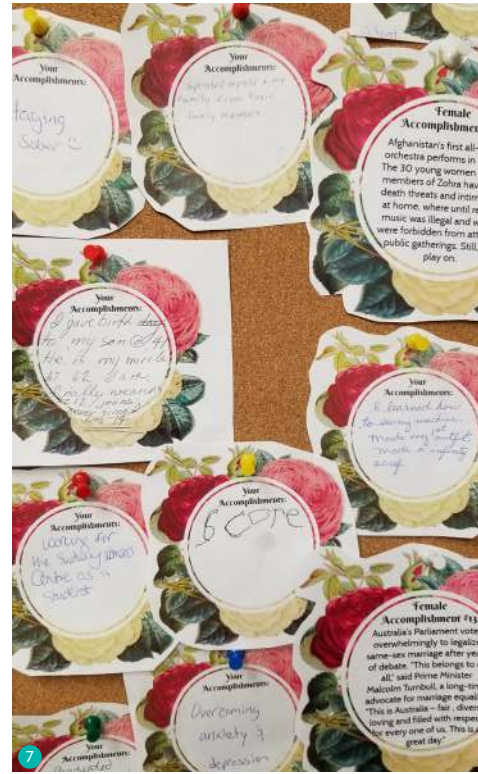 Your
Accomplishments:
Staying
Sober
Your
Accomplishments:
myself & my
family from toxic
family members
Female
Accomplishme
Afghanistan's first all-
orchestra performs in
The 30 young women
members of Zohra hav
death threats and intim
at home, where until re
music was illegal and w
were forbidden from att
public gatherings. Still,
play on.
Your
Accomplishments:
I gave birth
to my son @ 41
He is my miracle
At 62 I am
finally wearing
Your
Accomplishments:
I learned how
to sewing machine
made my outfit
made a infinity
scarf
Your
Accomplishments:
working for
the Sudbury Women's
Centre as a
student
Your
Accomplishments:
Score
Female
Accomplishment #13
Australia's Parliament vote
overwhelmingly to legaliz
same-sex marriage after yea
of debate. "This belongs to u
all," said Prime Minister
Malcolm Turnbull, a long-tim
advocate for marriage equali
"This is Australia – fair, divers
loving and filled with respec
for every one of us. This is a
great day."
Your
Accomplishments:
Overcoming
anxiety &
depression
Your
Accomplishments:
7